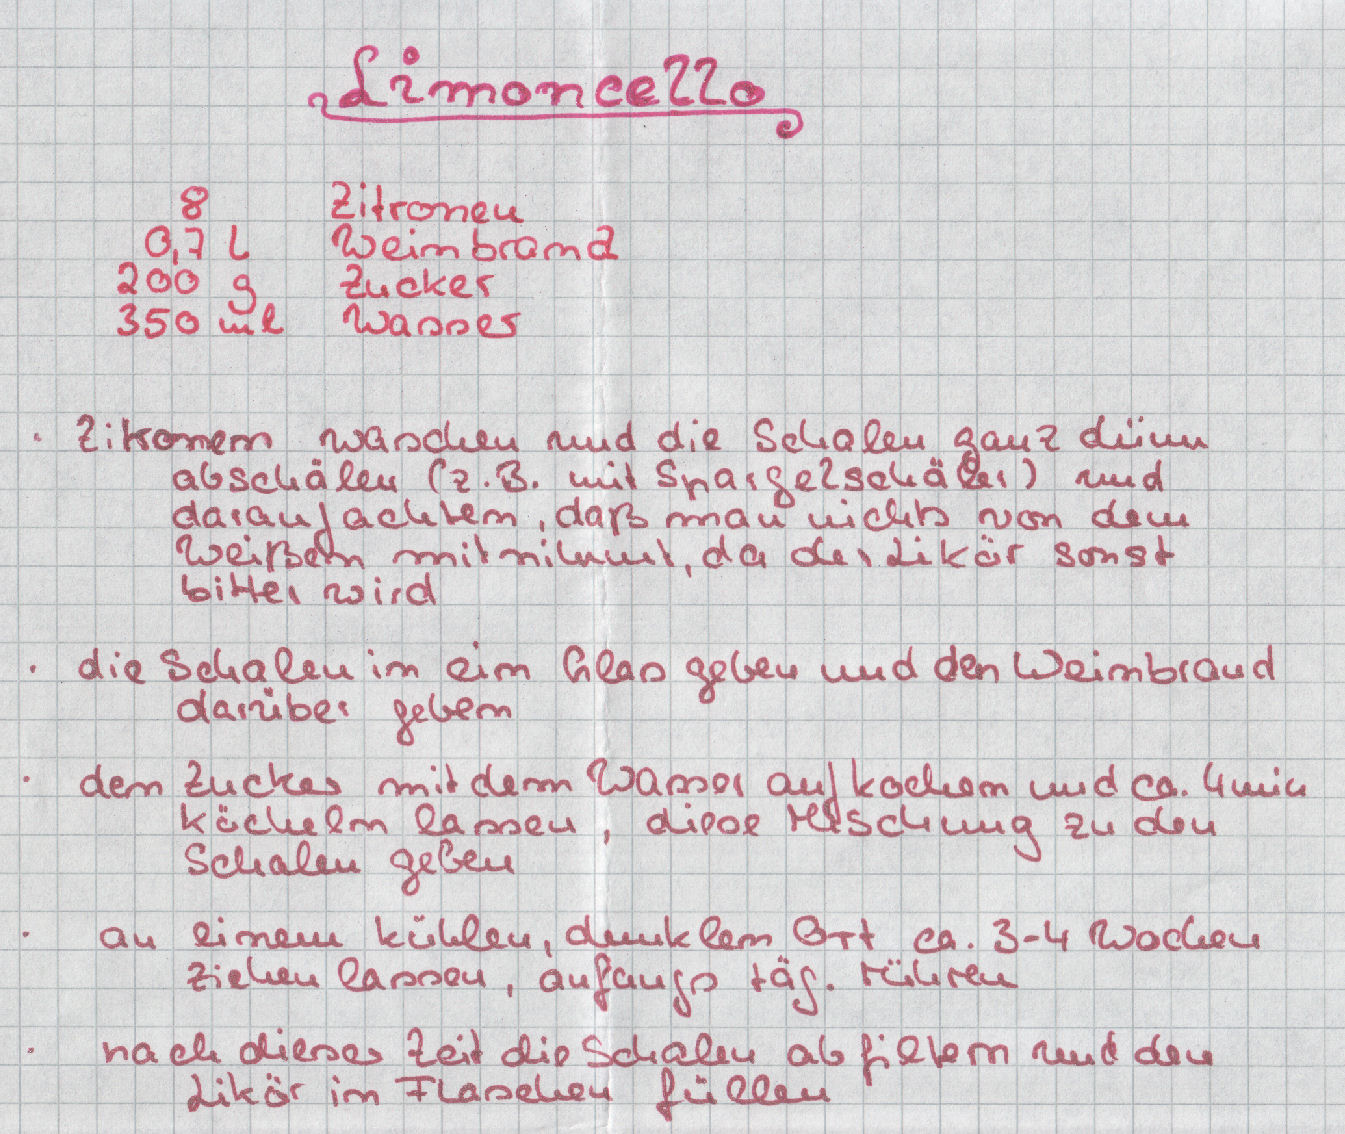 Limoncello
8 Zitronen
0,7 l Weinbrand
200 g Zucker
350 ml Wasser
· Zitronen waschen und die Schalen ganz dünn
abschälen (z.B. mit Spargelschäler) und
darauf achten, daß man nichts von dem
Weißen mitnimmt, da der Likör sonst
bitter wird
· die Schalen in ein Glas geben und den Weinbrand
darüber geben
· den Zucker mit dem Wasser aufkochen und ca. 4 min
köcheln lassen, diese Mischung zu den
Schalen geben
· an einem kühlen, dunklen Ort ca. 3-4 Wochen
ziehen lassen, anfangs täg. rühren
· nach dieser Zeit die Schalen abfiltern und den
Likör in Flaschen füllen